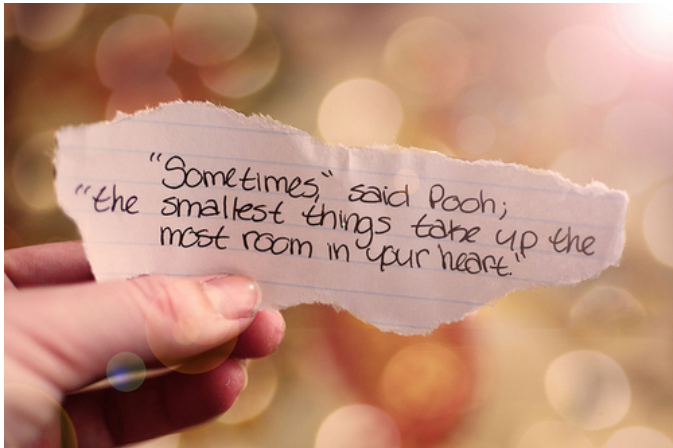 "Sometimes," said Pooh;
"the smallest things take up the
most room in your heart."